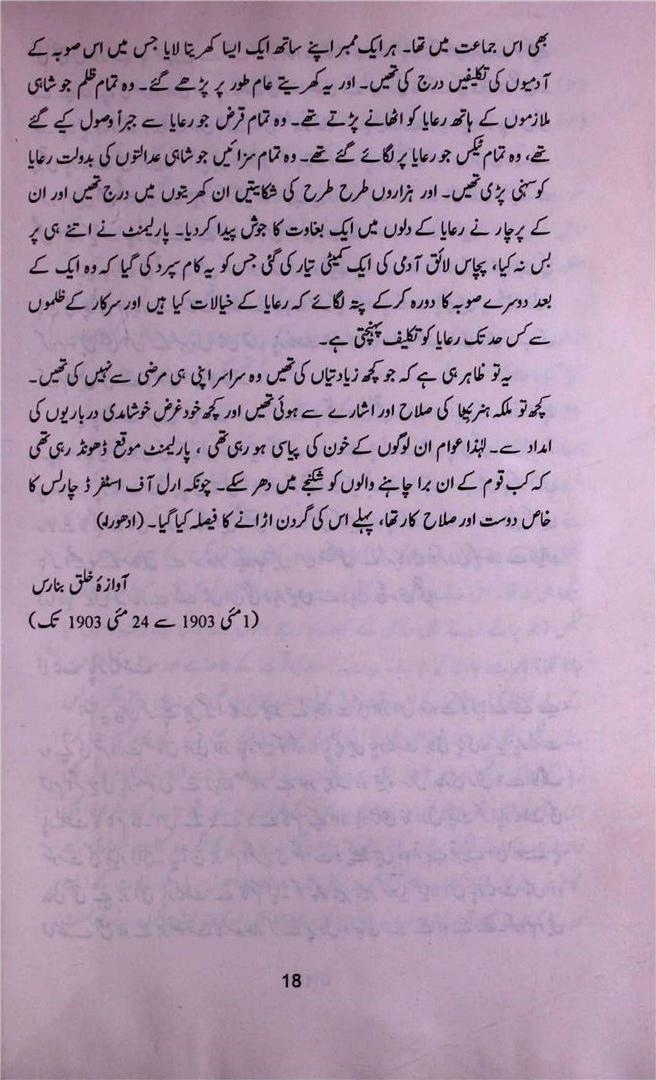 بھی اس جماعت میں تھا۔ ہر ایک ممبر اپنے ساتھ ایک ایسا کھریتا لایا جس میں اس صوبہ کے
آدمیوں کی تکلیفیں درج کی تھیں۔ اور یہ کھریتے عام طور پر پڑھے گئے۔ وہ تمام ظلم جو شاہی
ملازموں کے ہاتھ رعایا کو اٹھانے پڑتے تھے۔ وہ تمام قرض جو رعایا سے جبراً وصول کیے گئے
تھے، وہ تمام ٹیکس جو رعایا پر لگائے گئے تھے۔ وہ تمام سزائیں جو شاہی عدالتوں کی بدولت رعایا
کو سہنی پڑی تھیں۔ اور ہزاروں طرح طرح کی شکایتیں ان کھریتوں میں درج تھیں اور ان
کے پرچار نے رعایا کے دلوں میں ایک بغاوت کا جوش پیدا کردیا۔ پارلیمنٹ نے اتنے ہی پر
بس نہ کیا، پچاس لائق آدمی کی ایک کمیٹی تیار کی گئی جس کو یہ کام سپرد کی گیا کہ وہ ایک کے
بعد دوسرے صوبہ کا دورہ کرکے پتہ لگائے کہ رعایا کے خیالات کیا ہیں اور سرکار کے ظلموں
سے کس حد تک رعایا کو تکلیف پہنچتی ہے۔
یہ تو ظاہر ہی ہے کہ جو کچھ زیادتیاں کی تھیں وہ سراسر اپنی ہی مرضی سے نہیں کی تھیں۔
کچھ تو ملکہ ہنریٹا کی صلاح اور اشارے سے ہوئی تھیں اور کچھ خود غرض خوشامدی درباریوں کی
امداد سے۔ لہٰذا عوام ان لوگوں کے خون کی پیاسی ہو رہی تھی، پارلیمنٹ موقع ڈھونڈ رہی تھی
کہ کب قوم کے ان برا چاہنے والوں کو شکنجے میں دھر سکے۔ چونکہ ارل آف اسٹفرڈ چارلس کا
خاص دوست اور صلاح کار تھا، پہلے اس کی گردن اڑانے کا فیصلہ کیا گیا۔ (ادھورا)
آوازۂ خلق بنارس
(1 مئی 1903 سے 24 مئی 1903 تک)
18